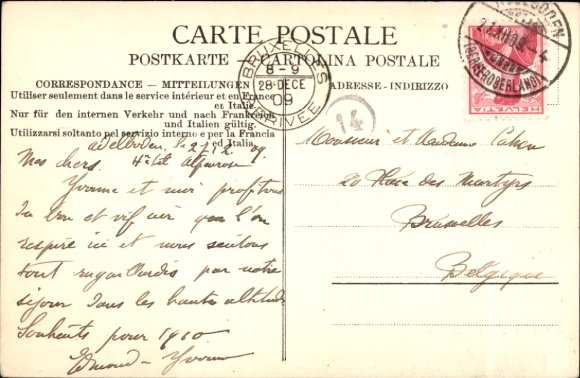 CARTE POSTALE
POSTKARTE — CARTOLINA POSTALE
CORRESPONDANCE — MITTEILUNGEN
Utiliser seulement dans le service intérieur et en France
et Italie
Nur für den internen Verkehr und nach Frankreich
und Italien gültig
Utilizzarsi soltanto pel servizio interno e per la Francia
ed Italia
ADRESSE - INDIRIZZO
BRUXELLES
8-9
28 DECE
09
ARRIVEE
14
ADELBODEN
(BERNEROBERLAND)
HELVETIA
Adelboden, le 27/12 09.
Mes chers. Hôtel Alpenrose
Yvonne et moi profitons
du bon et vif air que l'on
respire ici et nous sentons
tout ragaillardis par notre
séjour dans les hautes altitudes
Souhaits pour 1910
Edmond - Yvonne
Monsieur et Madame Cahen
20 Place des Martyrs
Bruxelles
Belgique